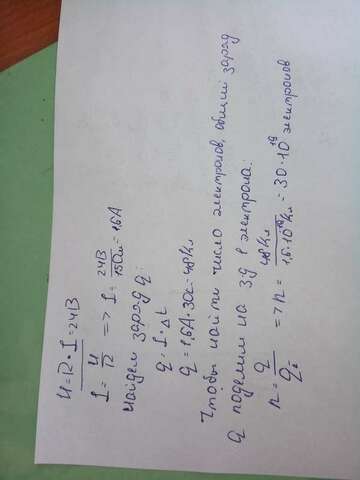 U=R·I=24В
I=U/R => I=24В/15Ом=1,6А
Найдем заряд q:
q=I·Δt
q=1,6А·30с=48Кл
Чтобы найти число электронов, общий заряд
q поделим на зд е электрона:
n=q/qₑ => n=48Кл/1,6·10¹⁹Кл=30·10¹⁹ электронов